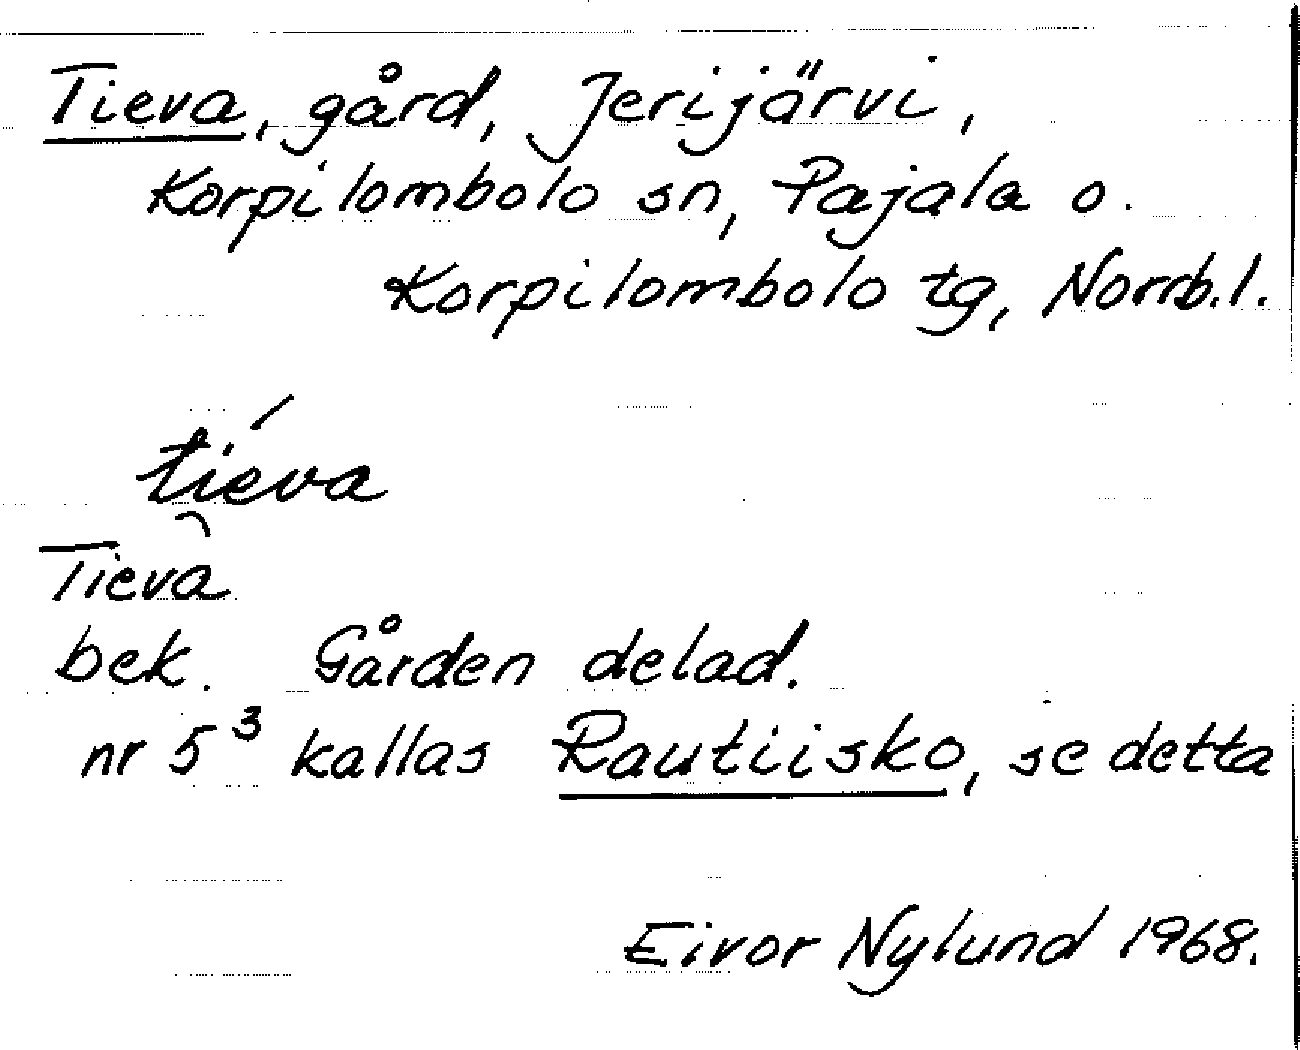 Tieva, gård, Jerijärvi,
Korpilombolo sn, Pajala o.
Korpilombolo tg, Norrb.l.
tíeva
Tieva
bek. Gården delad.
nr 5³ kallas Rautiisko, se detta
Eivor Nylund 1968.